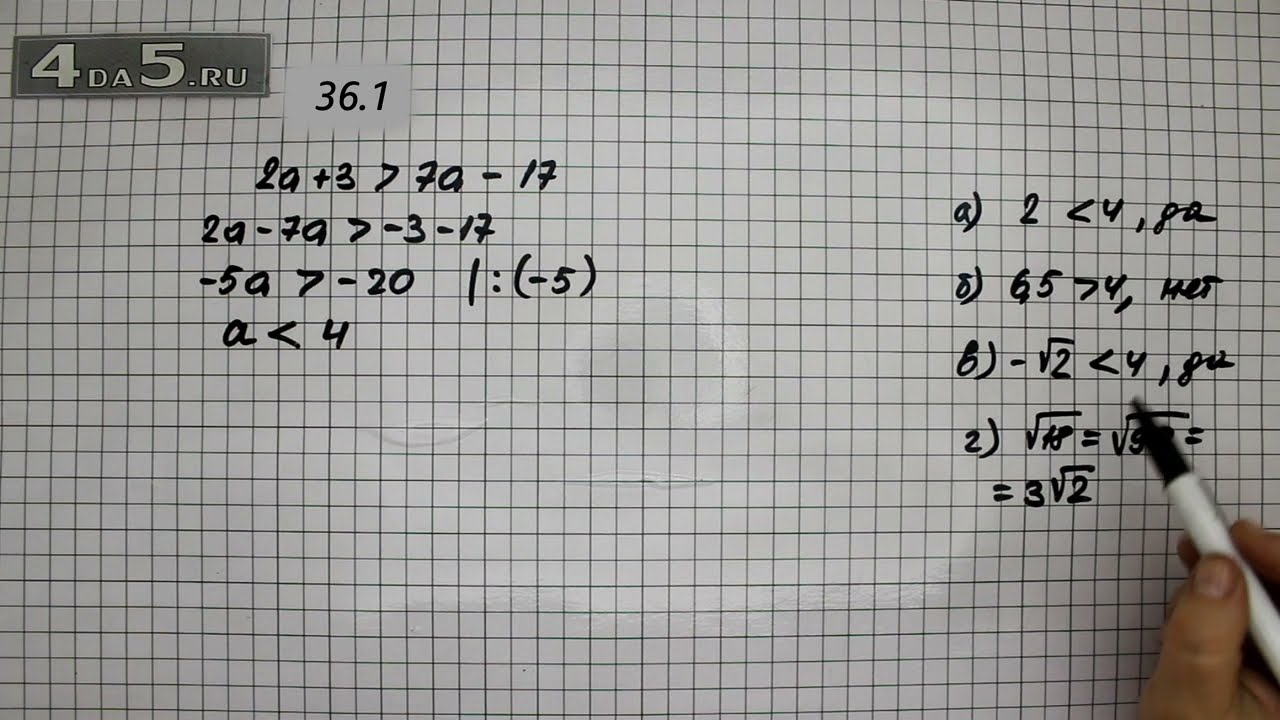 4DA5.RU
36.1
2a+3 > 7a - 17
2a - 7a > -3 - 17
-5a > -20 | : (-5)
a < 4
а) 2 < 4, да
б) 6,5 > 4, нет
в) -√2 < 4, да
г) √18 = √ =
= 3√2